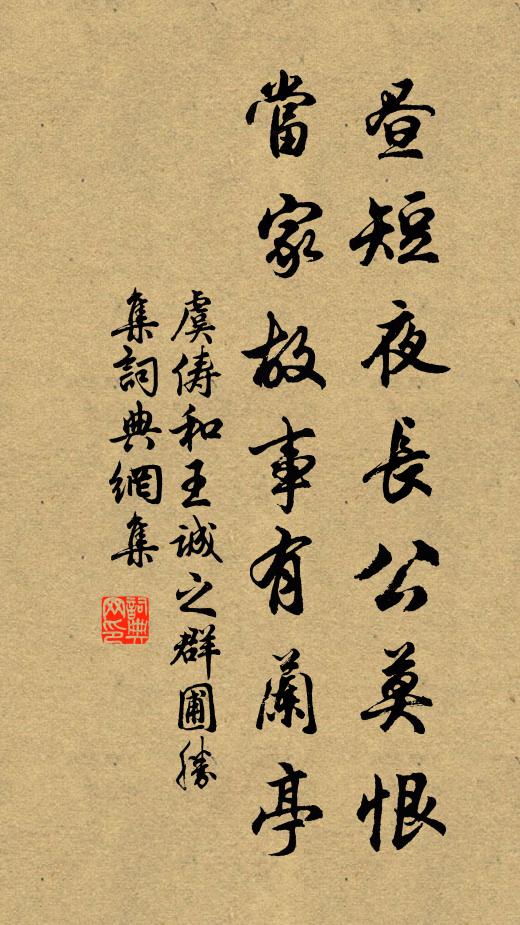 晝短夜長公莫恨
當家故事有蘭亭
虞儔和王誠之群圃勝
集詞典網集
詞典网印